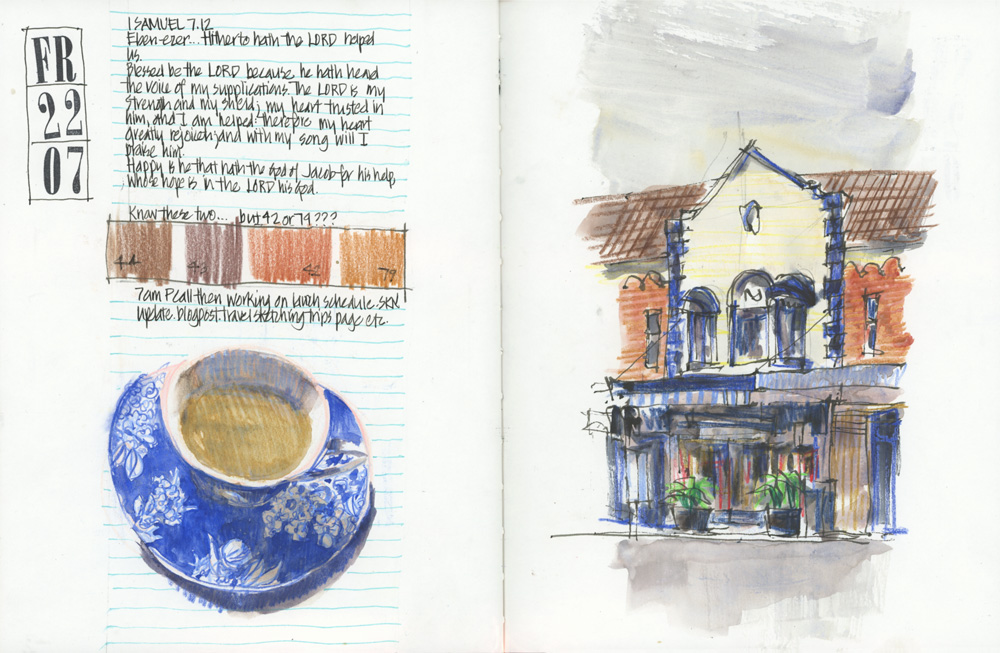 FR
22
07
1 SAMUEL 7.12
Eben-ezer... Hitherto hath the LORD helped
us.
Blessed be the LORD because he hath heard
the voice of my supplications. The LORD is my
strength and my shield; my heart trusted in
him, and I am helped: therefore my heart
greatly rejoiceth; and with my song will I
praise him.
Happy is he that hath the God of Jacob for his help,
whose hope is in the LORD his God.
Know these two... but 42 or 79???
44
43
42
79
7am Pcall then working on launch schedule. SKN
update. blogpost. travel sketching trips page etc.